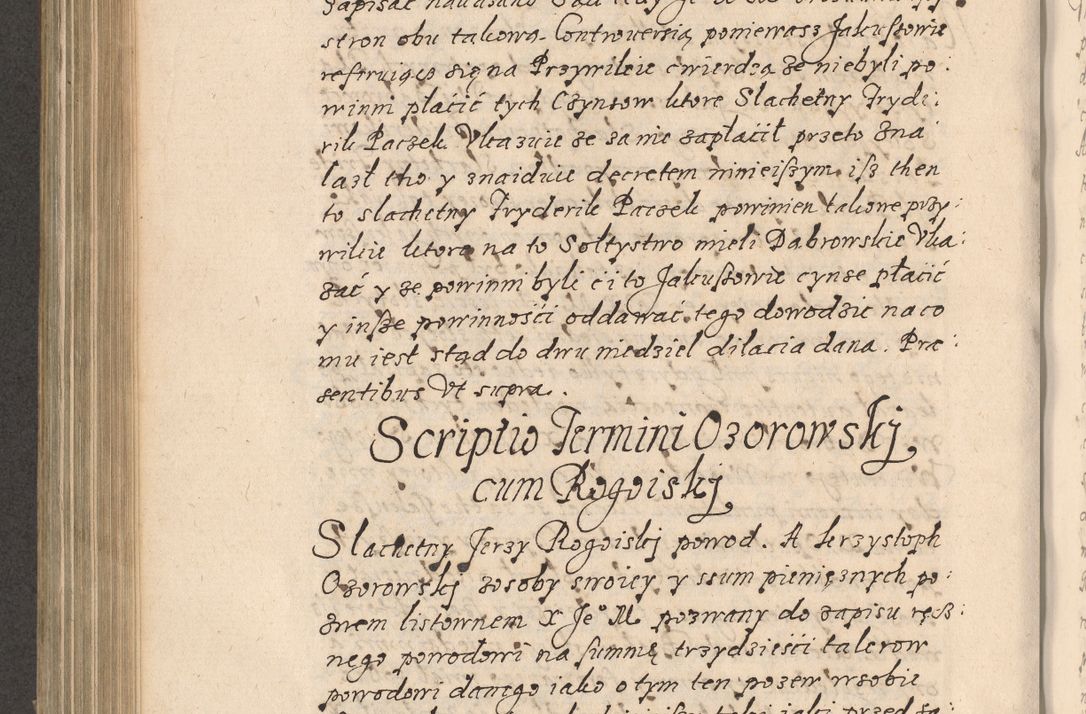 stron obu takową Controuersią poniewasz Jakuſzowie
refferuiąco się na Przywileie cwierdzą że niebyli po:
winni płacić tych Czynszow ktore Slachetny Fryde:
rik Paczek Vkazuie że sam ie zapłacił przeto zna
lazł tho y znaiduie decretem ninieiſzym iſz then
to slachetny Fryderik Paczek powinien takowe przy:
wileie ktore na to Sołtystwo mieli Dąbrowskie Vka:
zać y że powinni byli ci to Jakuſzowie cynsze płacić
y inſze powinnośći oddawać tego dowodzic na co
mu iest stąd do dwu niedziel dilacia dana. Præ:
sentibus Vt supra.
Scriptio Termini Ozorowskj
cum Rogoiskj
Slachetny Jerzy Rogoiskj powod. A krzystoph
Ozorowskj zosoby swoiey y ssum pienięznych po:
znem listownem X Jeº M pozwany do zapisu ręcz:
nego powodowi na summę trzydzieśći talerow
powodowi danego iako o tym ten pozew wsobie